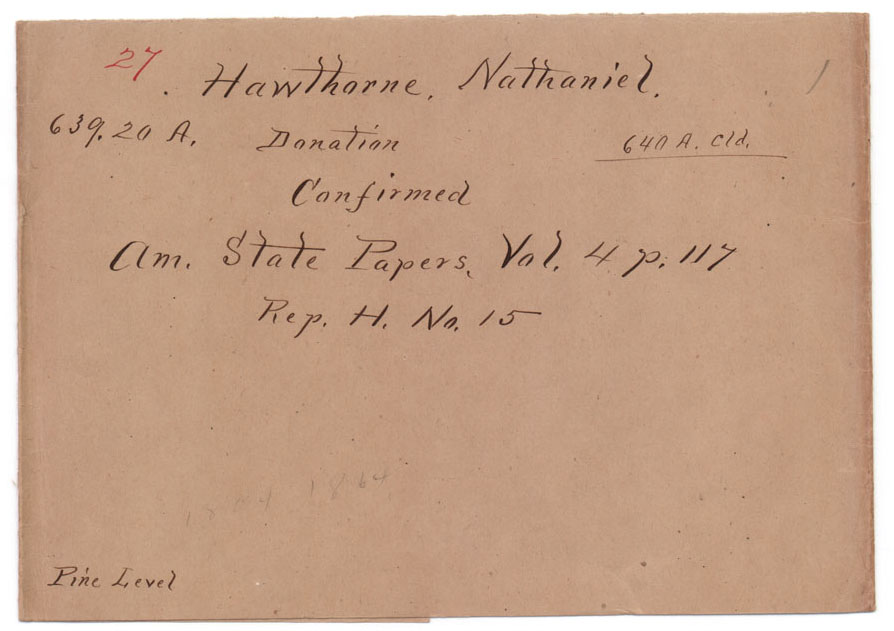 27
Hawthorne, Nathaniel. 1
639.20 A. Donation 640 A. Cld.
Confirmed
Am. State Papers, Vol. 4 p. 117
Rep. H. No. 15
Pine Level